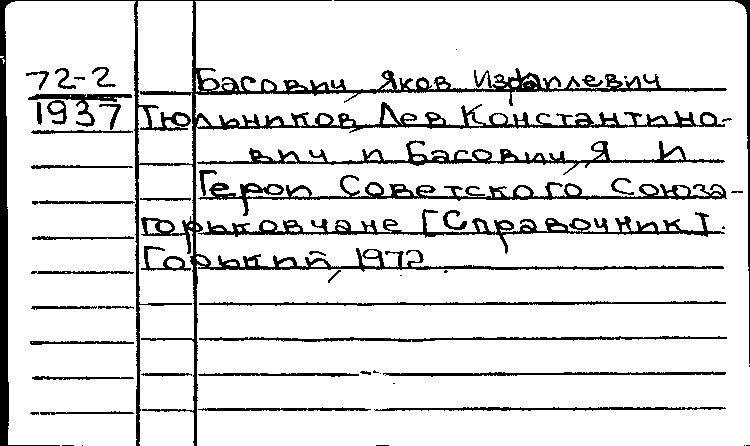 72-2
1937
Басович, Яков Израилевич
Тюльников, Лев Константино-
вич и Басович, Я. И.
Герои Советского Союза-
горьковчане [Справочник].
Горький, 1972.